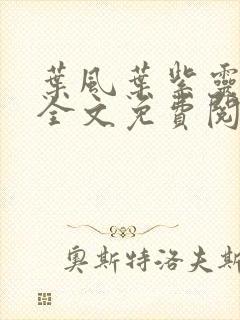 葉風葉紫靈
全文免費閱
奧斯特洛夫斯